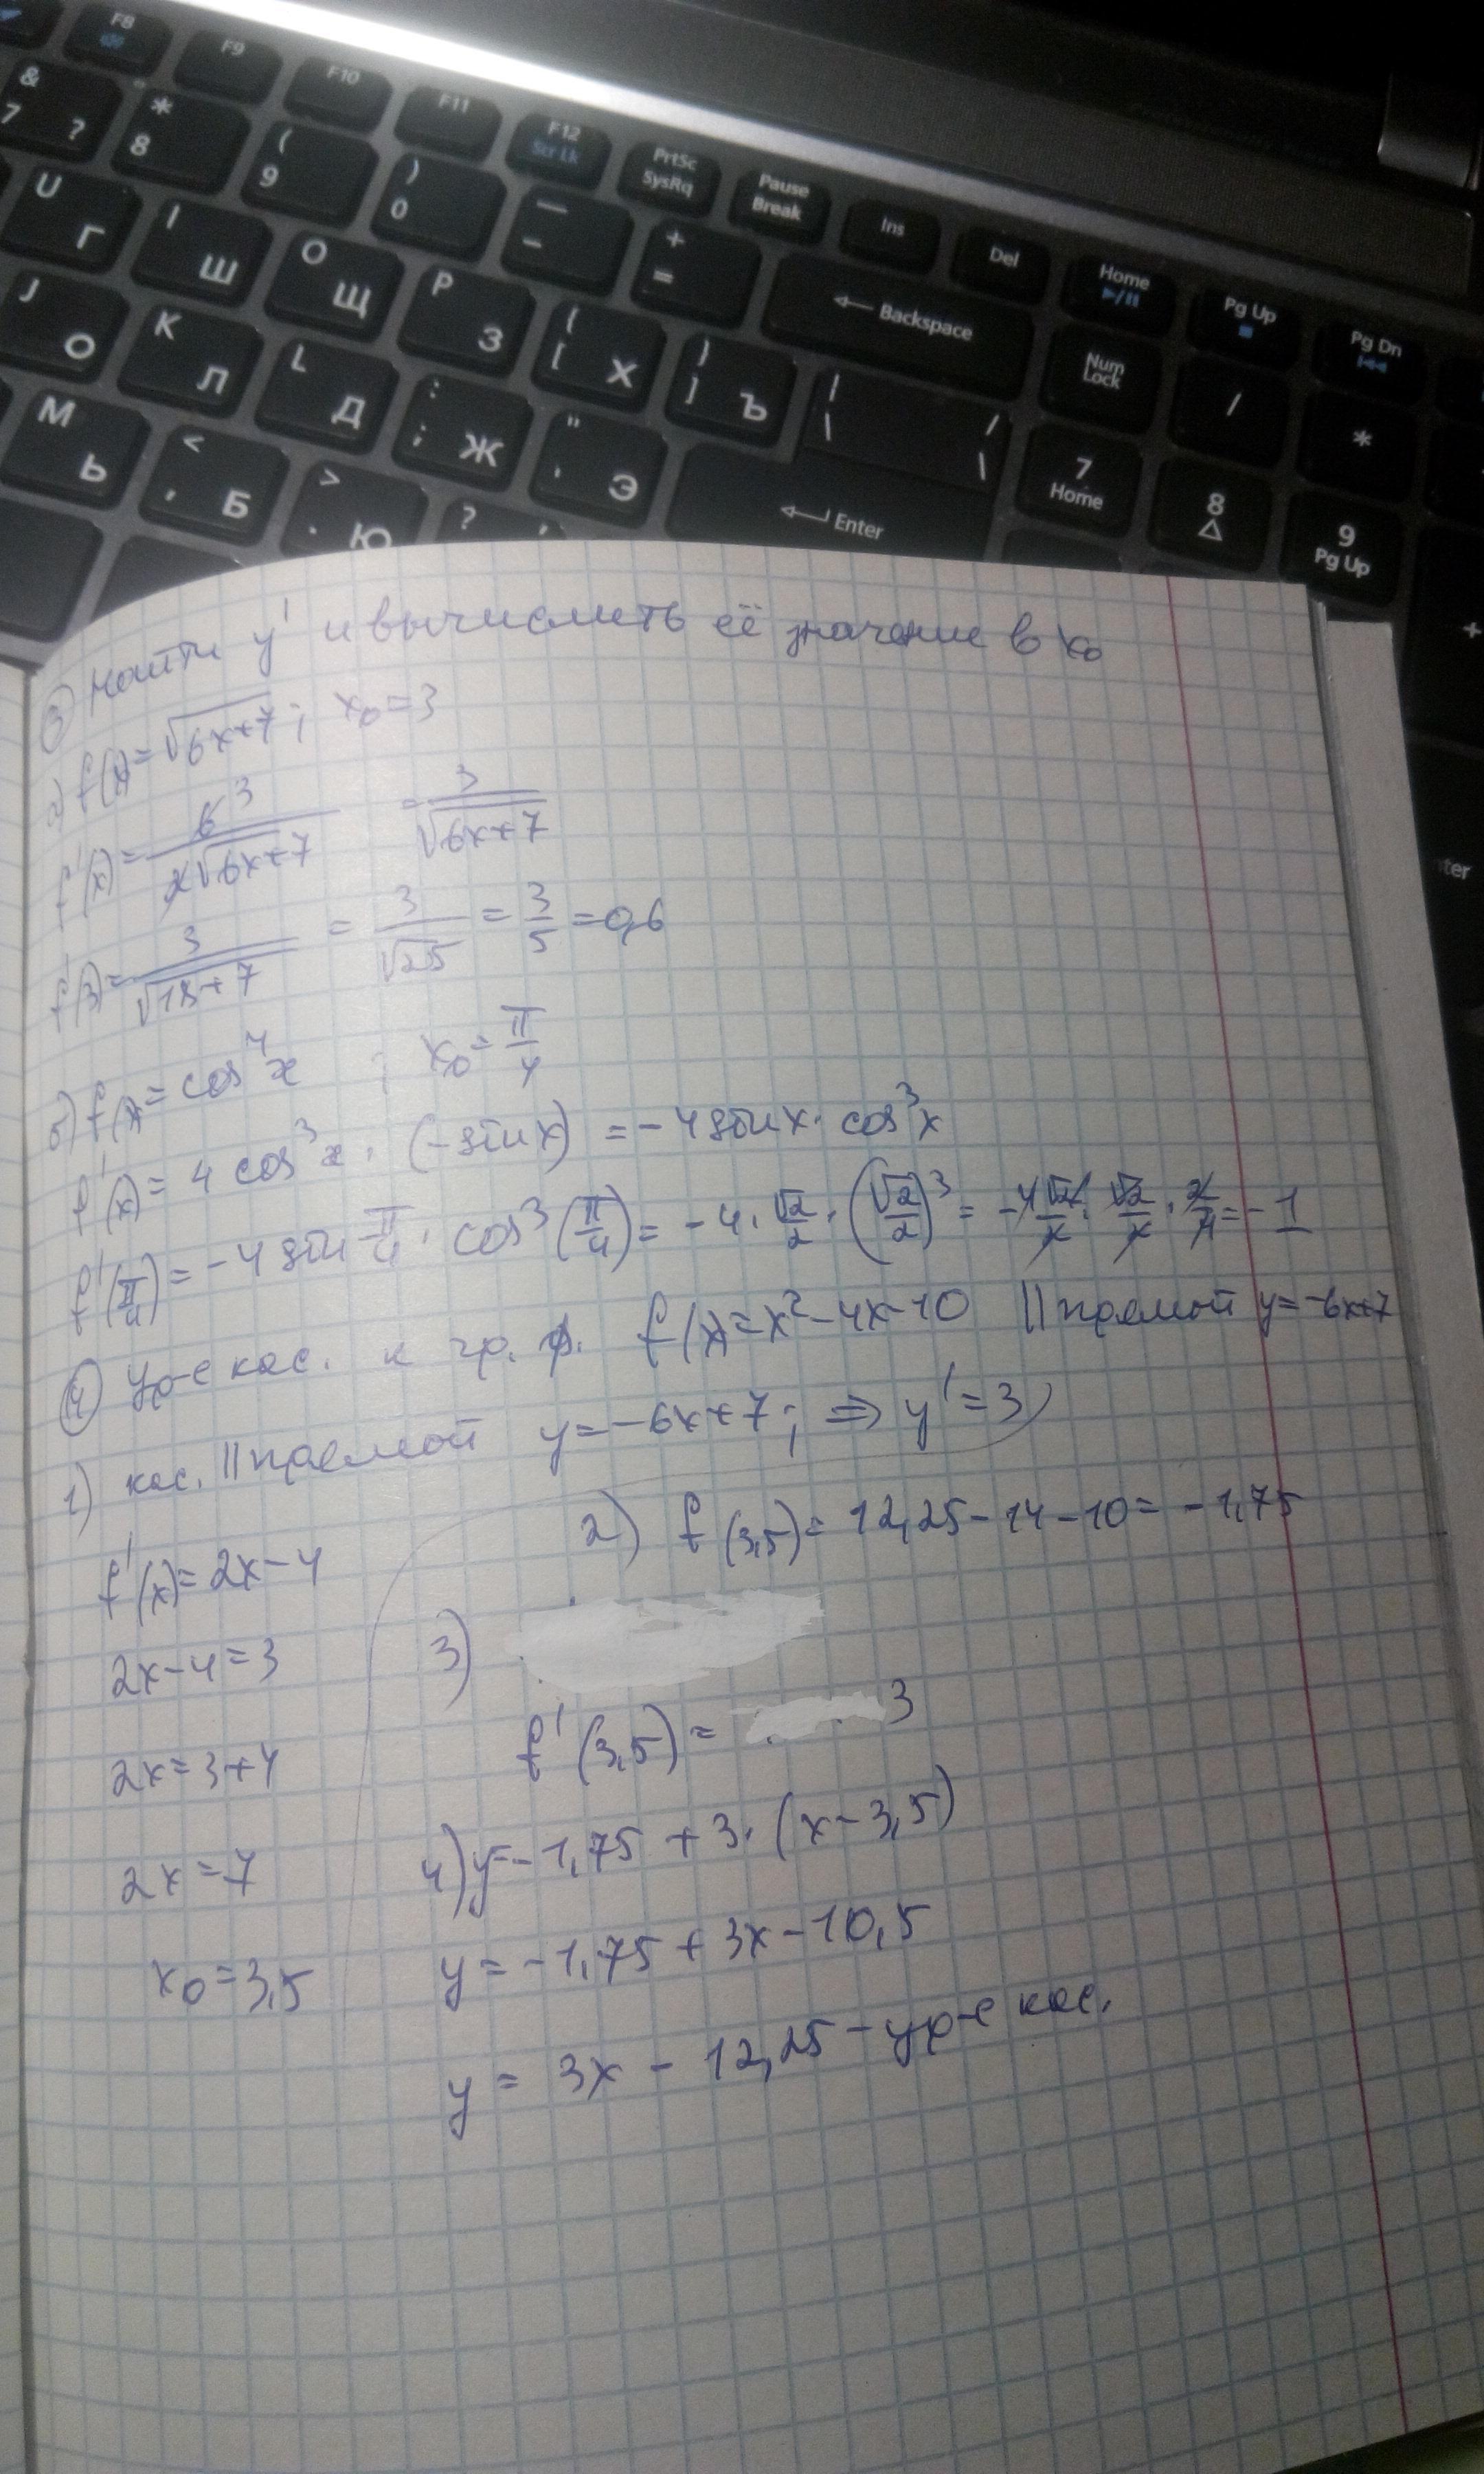 F8
F9
F10
F11
F12
Scr Lk
PrtSc
SysRq
Pause
Break
Ins
Del
Home
Pg Up
Pg Dn
&
7 ?
*
8
(
9
)
0
—
-
+
=
Backspace
Num
Lock
/
*
U
Г
I
Ш
O
Щ
P
З
{
[ Х
}
] Ъ
|
\
/
\
7
Home
8
9
Pg Up
+
J
О
K
Л
L
Д
:
; Ж
"
' Э
Enter
M
Ь
<
, Б
>
. Ю
?
③ Найти y' и вычислить её значение в x₀
а) f(x)=√(6x+7); x₀=3
f'(x)= 6 3/2√(6x+7) = 3/√(6x+7)
f'(3)= 3/√(18+7) = 3/√25 = 3/5 = 0,6
б) f(x)= cos⁴x ; x₀= π/4
f'(x)= 4 cos³x · (-sin x) = -4 sin x · cos³x
f'(π/4)= -4 sin π/4 · cos³(π/4)= -4 · √2/2 · (√2/2)³= -4√2/2 · √2/2 · 2/4= -1
④ Ур-е кас. к гр. ф. f(x)=x²-4x-10 || прямой y=-6x+7
1) кас. || прямой y=-6x+7; ⇒ y'=3
f'(x)=2x-4
2x-4=3
2x=3+4
2x=7
x₀=3,5
2) f(3,5)= 12,25-14-10= -1,75
3)
f'(3,5)= 3
4) y=-1,75 +3·(x-3,5)
y=-1,75+3x-10,5
y= 3x - 12,25 - ур-е кас.